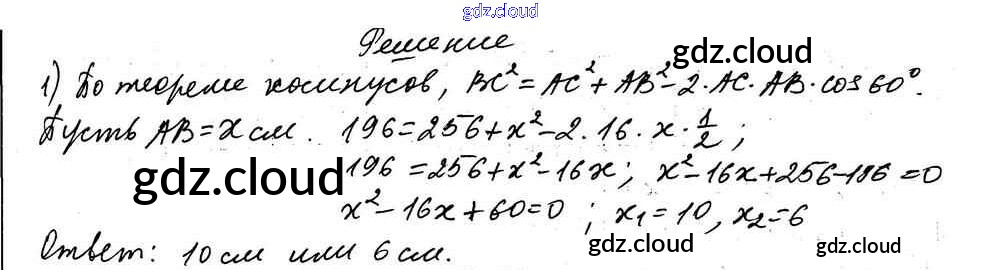 gdz.cloud
Решение gdz.cloud
1) По теореме косинусов, BC² = AC² + AB² - 2·AC·AB·cos 60°.
Пусть AB = x см. 196 = 256 + x² - 2·16·x·1/2;
gdz.cloud 196 = 256 + x² - 16x; x² - 16x + 256 - 196 = 0
x² - 16x + 60 = 0; x₁ = 10, x₂ = 6
Ответ: 10 см или 6 см. gdz.cloud gdz.cloud